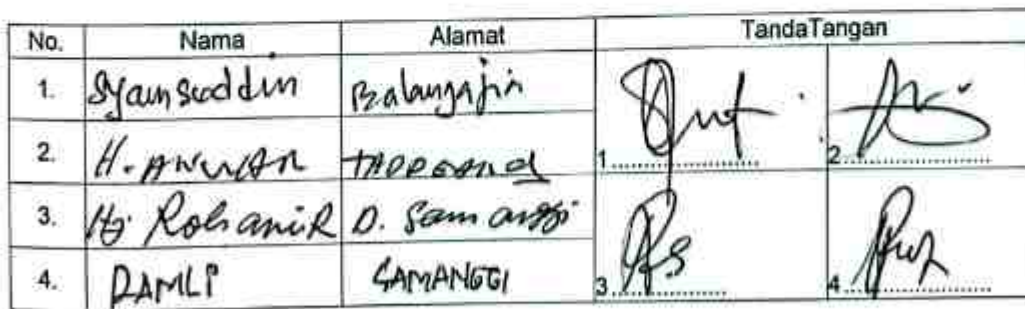 No. Nama Alamat TandaTangan
1. Syamsuddin Balangajin 1 2
2. H. ANWAR
3. Hj. Rohani R D. Samanggi 3 4
4. RAMLI SAMANGGI